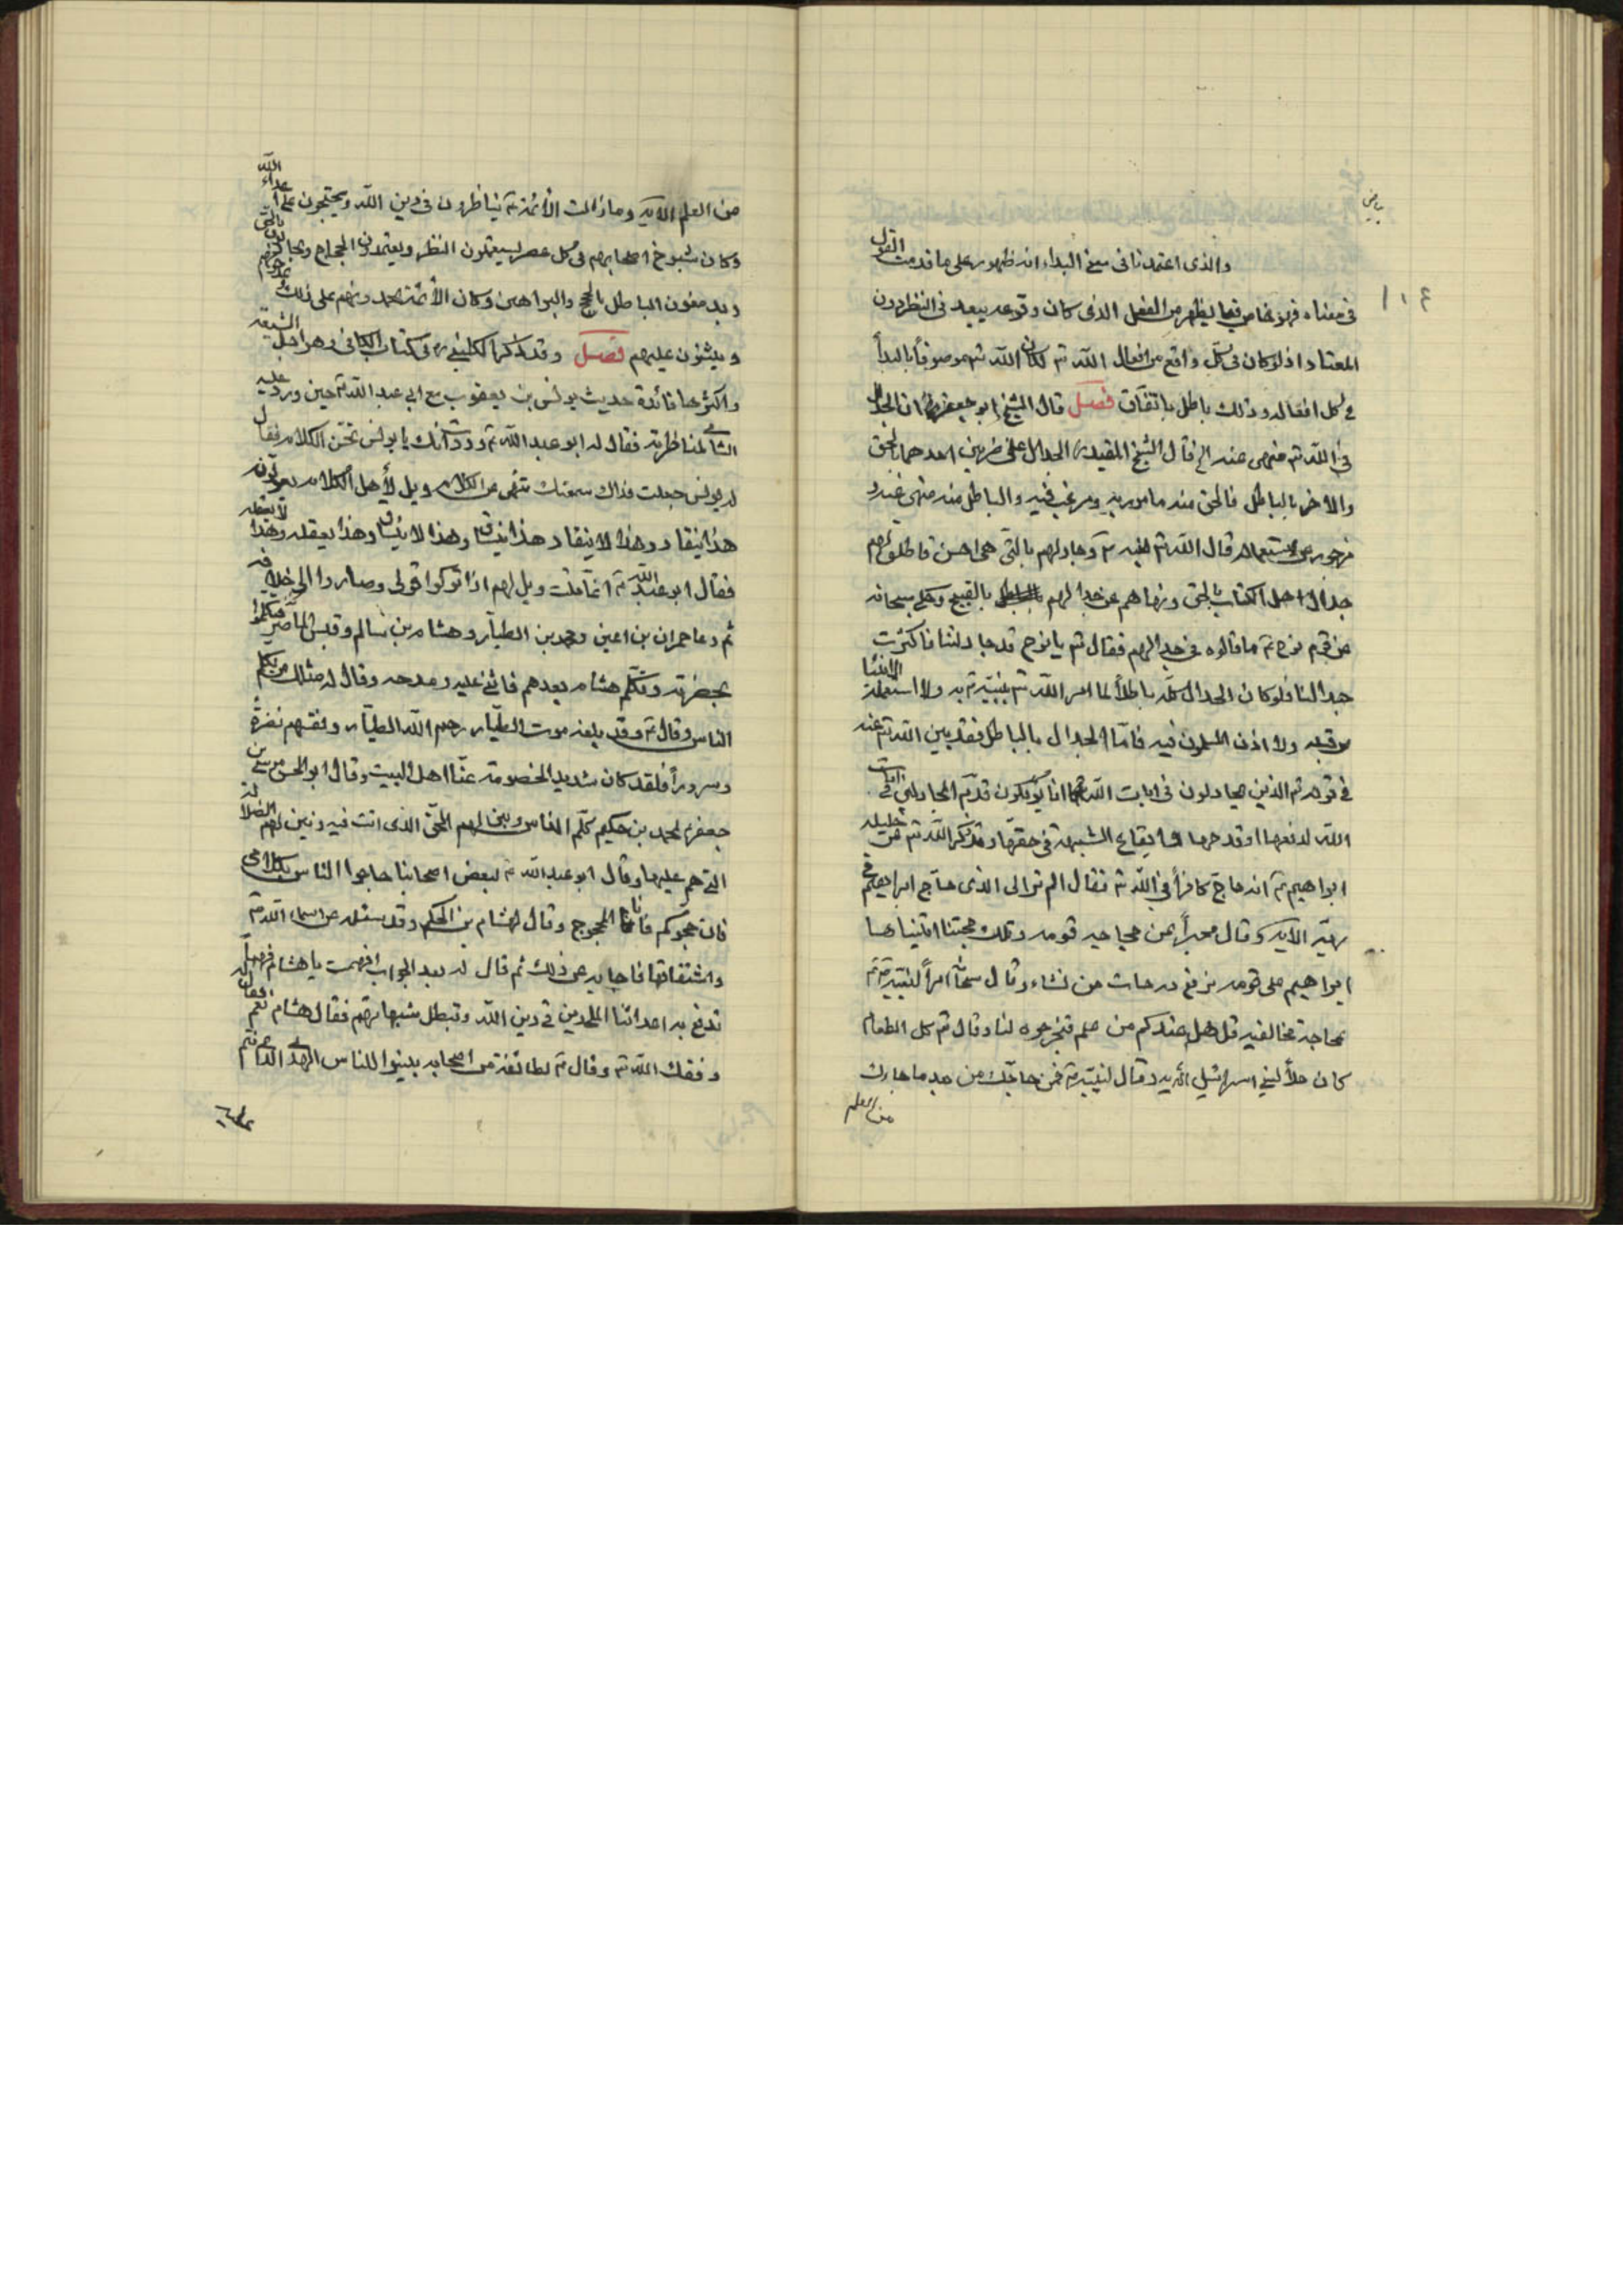 بياض
١٠٤
والذى اعتمدنا فى معنى البداء انه ظهور على ما قدمت القول
فى معناه فهو خاص فيما يظهر من الفعل الذى كان وقوعه يبعد فى النظر دون
المعتاد اذ لو كان فى كلّ واقع من افعال اللّه تع لكان اللّه تع موصوفاً بالبدأ
فى كل افعاله وذلك باطل باتفاق فصل قال الشيخ ابو جعفر ان الجدال
فى اللّه تع منهى عنه الخ قال الشيخ المفيد الجدال على ضربين احدهما بالحق
والاخر بالباطل فالحق منه مامور به ومرغب فيه والباطل منه منهى عنه و
مزجور عن استعماله قال اللّه تع لنبيه وجادلهم بالتى هى احسن فاطلق لهم
جدال اهل الكتاب بالحق ونهاهم عن جدالهم بالقبيح وحكى سبحانه
عن قوم نوح ما قالوه فى جدالهم فقال تع يا نوح قد جادلتنا فاكثرت
جدالنا فلو كان الجدال كلّه باطلاً لما امر اللّه تع نبيّه به ولا استعمله الانبيا
من قبله ولا اذن المسلمون فيه فامّا الجدال بالباطل فقد بين اللّه تع عنه
فى قوله تع الذين يجادلون فى ايات اللّه انا يؤفكون قد ذمّ المجادلين فى ايات
اللّه لدفعها او قدحها وايقاع الشبهة فى حقها وقد ذكر اللّه تع عن خليله
ابراهيم انه حاجّ كافراً فى اللّه تع فقال الم تر الى الذى حاجّ ابراهيم فى
ربّه الايه وقال مخبراً عن حجاجه قومه وتلك حجتنا اتيناها
ابراهيم على قومه نرفع درجات من نشاء وقال سبحانه امراً لنبيّه
بمحاجة مخالفيه قل هل عندكم من علم فتخرجوه لنا وقال تع كل الطعام
كان حلاً لبنى اسرائيل الايه وقال لنبيّه فمن حاجّك من بعد ما جاءك
من العلم
من العلم الايه وما زالت الائمة يناظرون فى دين اللّه ويحتجون على اعداء اللّه
وكان شيوخ اصحابهم فى كل عصر يستعملون النظر ويعتمدون الحجاج ويجادلون بالحق
ويدمغون الباطل بالحجج والبراهين وكان الأئمة يحمدونهم على ذلك ويمدحونهم
ويثنون عليهم فصل وقد ذكر الكلينى فى كتاب الكافى وهو اجل كتب الشيعة
واكثرها فائدة حديث يونس بن يعقوب مع ابى عبد اللّه حين ورد عليه
الشامى لمناظرته فقال له ابو عبد اللّه وددت انك يا يونس تحسن الكلام فقال
له يونس جعلت فداك سمعتك تنهى عن الكلام وتقول ويل لأهل الكلام يقولون
هذا ينقاد وهذا لا ينقاد وهذا ينساق وهذا لا ينساق وهذا نعقله وهذا لا نعقله
فقال ابو عبد اللّه انّما قلت ويل لهم اذا تركوا قولى وصاروا الى خلافه
ثم دعا حمران بن اعين ومحمد بن الطيّار وهشام بن سالم وقيس الماصر فتكلموا
بحضرته وتكلّم هشام بعدهم فاثنى عليه ومدحه وقال له مثلك من يكلم
الناس وقال وقد بلغه موت الطيّار رحم اللّه الطيّار ولقّيه نضرةً
وسروراً فلقد كان شديد الخصومة عنّا اهل البيت وقال ابو الحسن موسى بن
جعفر لمحمد بن حكيم كلّم الناس وبين لهم الحقّ الذى انت فيه وبين لهم الضلالة
التى هم عليها وقال ابو عبد اللّه لبعض اصحابنا حاجوا الناس بكلامى
فان حجوكم فانا المحجوج وقال لهشام بن الحكم وقد سئله عن اسماء اللّه
واشتقاقها فاجابه عن ذلك ثم قال له بعد الجواب افهمت يا هشام فهماً
تدفع به اعدائنا الملحدين فى دين اللّه وتبطل شبهاتهم فقال هشام نعم فقال له
وفقك اللّه تع وقال لطائفة من اصحابه بينوا للناس الهدى الذى انتم